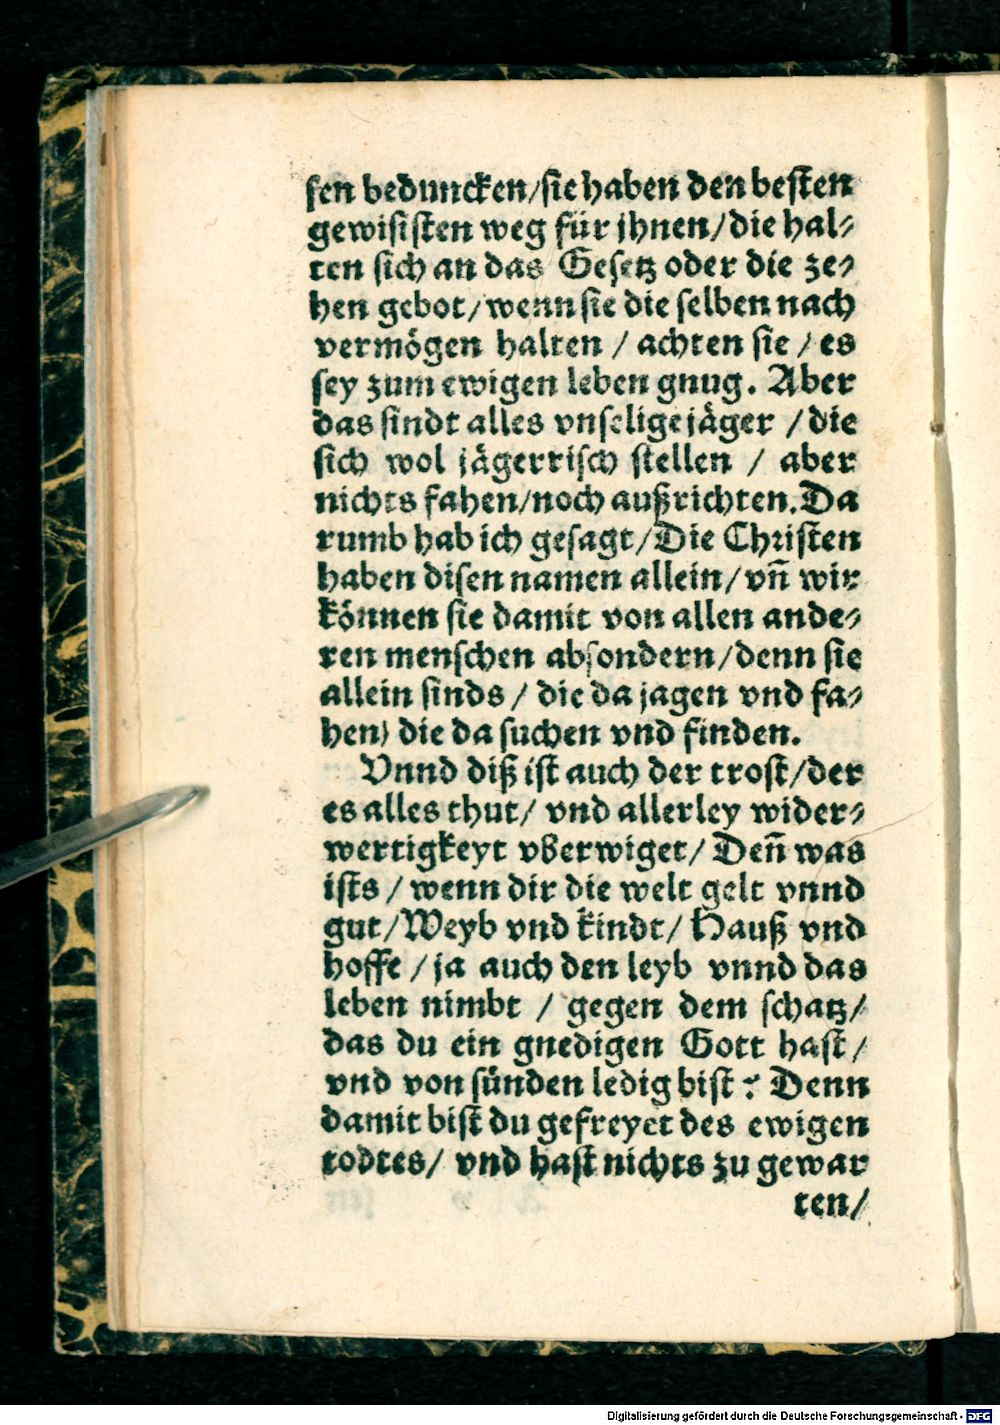 sen beduncken/sie haben den besten
gewisisten weg für jhnen/die hal⸗
ten sich an das Gesetz oder die ze⸗
hen gebot/wenn sie die selben nach
vermögen halten / achten sie / es
sey zum ewigen leben gnug. Aber
das sindt alles vnselige jäger / die
sich wol jägerrisch stellen / aber
nichts fahen/noch außrichten. Da
rumb hab ich gesagt/Die Christen
haben disen namen allein/vn̄ wir
können sie damit von allen ande⸗
ren menschen absondern/denn sie
allein sinds / die da jagen vnd fa⸗
hen) die da suchen vnd finden.
Vnnd diß ist auch der trost/der
es alles thut/ vnd allerley wider⸗
wertigkeyt vberwiget/ Den̄ was
ists / wenn dir die welt gelt vnnd
gut/Weyb vnd kindt/ Hauß vnd
hoffe / ja auch den leyb vnnd das
leben nimbt / gegen dem schatz/
das du ein gnedigen Gott hast/
vnd von sünden ledig bist? Denn
damit bist du gefreyet des ewigen
todtes/ vnd hast nichts zu gewar
ten/
Digitalisierung gefördert durch die Deutsche Forschungsgemeinschaft - DFG